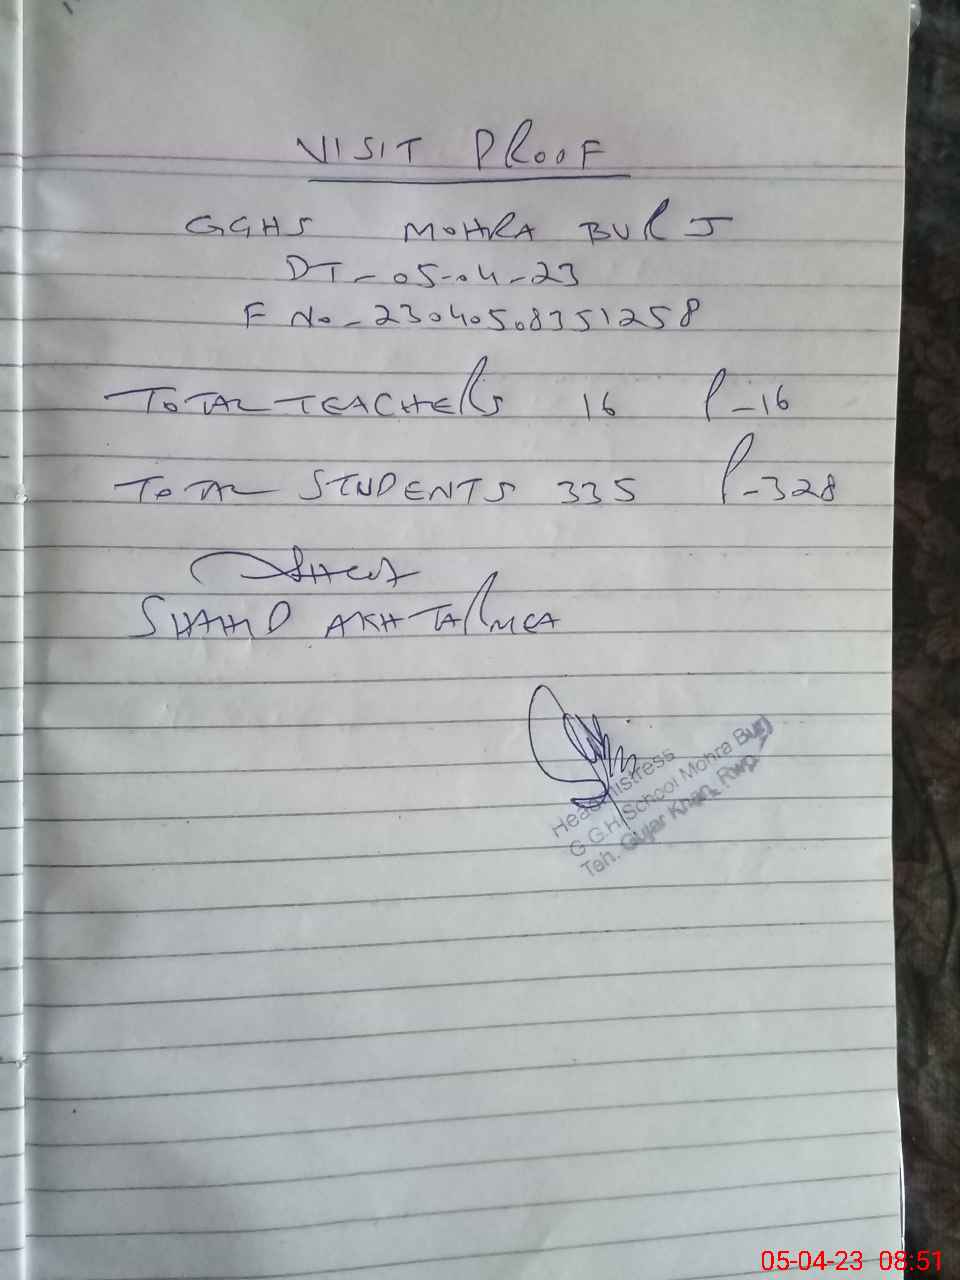 VISIT PROOF
GGHS MOHRA BURJ
DT-05-04-23
F No-23040508351258
TOTAL TEACHERS 16 P-16
TOTAL STUDENTS 335 P-328
SHAHID AKHTAR MEA
Headmistress
G.G.H School Mohra Burj
Teh. Gujar Khan, Rwp.
05-04-23 08:51